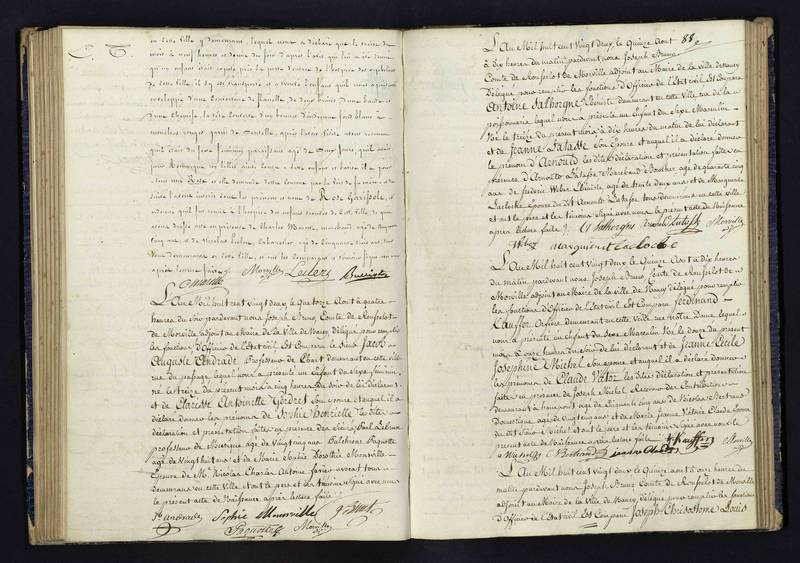 en cette ville y demeurant, lequel nous a déclaré que le treize du
mois à neuf heures et demie du soir d'après l'avis qui lui a été donné
qu'un enfant était exposé près la porte d'entrée de l'hospice des orphelins
de cette ville, il s'y est transporté et a trouvé l'enfant
enveloppé d'une couverture de flanelle, de deux
d'une chemise, la tête couverte d'un bonnet d'indienne fond blanc à
rouges garni de dentelle, après l'avoir visité avons reconnu
qu'il était du sexe féminin paraissant âgé de deux jours, qu'il avait
pour
une Rose
l'avons inscrit sous les prénom et nom de Rose Garifole, et
avons qu'il fut remis à l'hospice des enfants trouvés de cette ville, de quoi
avons dressé acte en présence de Charles
cinq ans, et de Nicolas Leclerc, de cinquante trois ans
tous demeurant en cette ville, et ont les comparans et témoins signé avec nous
après lecture faite.
Morville Leclerc
L'an Mil huit cent vingt deux, le quatorze Août à quatre
heures du soir pardevant nous Joseph Bruno, Comte de Rouselot
de Morville adjoint au Maire de la Ville de Nancy délégué pour remplir
les fonctions d'Officier de l'État civil, Est Comparu le Sieur Jacob
Auguste Andrade, Professeur de Chant demeurant en cette ville
rue du passage lequel nous a présenté un Enfant du sexe féminin,
né le treize du présent mois à cinq heures du soir de lui déclarant
et de Clarisse Antoinette son Epouse et auquel il a
déclaré donner les prénoms de Sophie Henriette les dites
déclaration et présentation faites en présence des Sieurs Paul
professeur de Musique, âgé de vingt cinq ans Pagnotte
âgé de vingt huit ans et de Marie Sophie Dorothée Monville
Epouse de M. Nicolas Charles Antoine avocat tous
demeurans en cette Ville, et ont le père et les témoins signé avec nous
le présent acte de Naissance après lecture faite.
andrade Sophie Monville
Pagnotte Morville
88
L'an Mil huit cent vingt deux, le Quinze Août
à dix heures du matin pardevant nous Joseph Bruno
Comte de Rouselot de Morville adjoint au Maire de la ville de Nancy
délégué pour remplir les fonctions d'Officier de l'État civil Est Comparu
Antoine Ebéniste demeurant en cette Ville rue de la
poissonnerie lequel nous a présenté un Enfant du Sexe Masculin
Né le treize du présent mois à dix heures du matin de lui déclarant
et de Jeanne Latasse son Epouse et auquel il a déclaré donner
le prénom d'Arnould les dites déclaration et présentation faites en
présence d'Arnould Latasse Marchand Boucher, âgé de quarante cinq
ans de frédéric Weber Ebéniste, âgé de trente deux ans et de Marguerite
Lacloche Epouse du dit Arnould Latasse tous demeurans en cette ville
et ont le père et les témoins signé avec nous le présent acte de Naissance
après lecture faite.
Morville
Weber marguerite lacloche
L'an Mil huit cent vingt deux, le Quinze Août à dix heures
du matin pardevant nous Joseph Bruno, Comte de Rouselot de
Morville adjoint au Maire de la Ville de Nancy délégué pour remplir
les fonctions d'Officier de l'État civil Est Comparu Ferdinand
Kauffer Orfèvre demeurant en cette Ville rue Notre Dame lequel
nous a présenté un Enfant du Sexe Masculin Né le douze du présent
mois à onze heures du soir de lui déclarant et de Jeanne Cécile
Josephine Michel son Epouse et auquel il a déclaré donner
les prénoms de Claude Victor les dites déclaration et présentation
faites en présence de Joseph Michel Receveur des Contributions
demeurant à âgé de soixante cinq ans de Nicolas Bertrand
Domestique âgé de vingt six ans et de Marie
du dit Sieur Michel et ont le père et les témoins signé avec nous le
présent acte de Naissance après lecture faite. Kauffer
Morville
L'an Mil huit cent vingt deux, le Quinze Août à onze heures du
matin pardevant nous Joseph Bruno Comte de Rouselot de Morville
adjoint au Maire de la Ville de Nancy, délégué pour remplir les fonctions
d'Officier de l'État civil Est Comparu Joseph Chrisostome Louis